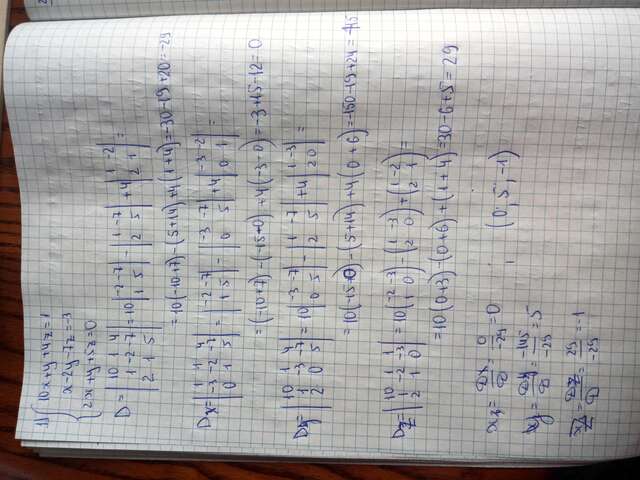 1) { 10x+y+4z=1
x-2y-7z=-3
2x+y+5z=0
D= | 10 1 4 | 1 -2 -7 | 2 1 5 | =10 | -2 -7 | 1 5 | - | 1 -7 | 2 5 | +4 | 1 -2 | 2 1 | =
=10(-10+7)-(5+14)+4(1+4)=-30-19+20=-29
Dx= | 1 1 4 | -3 -2 -7 | 0 1 5 | = | -2 -7 | 1 5 | - | -3 -7 | 0 5 | +4 | -3 -2 | 0 1 | =
=(-10+7)-(-15+0)+4(-3-0)=-3+15-12=0
Dy= | 10 1 4 | 1 -3 -7 | 2 0 5 | =10 | -3 -7 | 0 5 | - | 1 -7 | 2 5 | +4 | 1 -3 | 2 0 | =
=10(-15-0)-(5+14)+4(0+6)=-150-19+24=-145
Dz= | 10 1 1 | 1 -2 -3 | 2 1 0 | =10 ( -2 -3 | 1 0 ) - ( 1 -3 | 2 0 ) + ( 1 -2 | 2 1 ) =
=10(0+3)-(0+6)+(1+4)=30-6+5=29
x= Dx/D = 0/-29 =0
y= Dy/D = -145/-29 =5
z= Dz/D = 29/-29 =-1
(0; 5; -1)